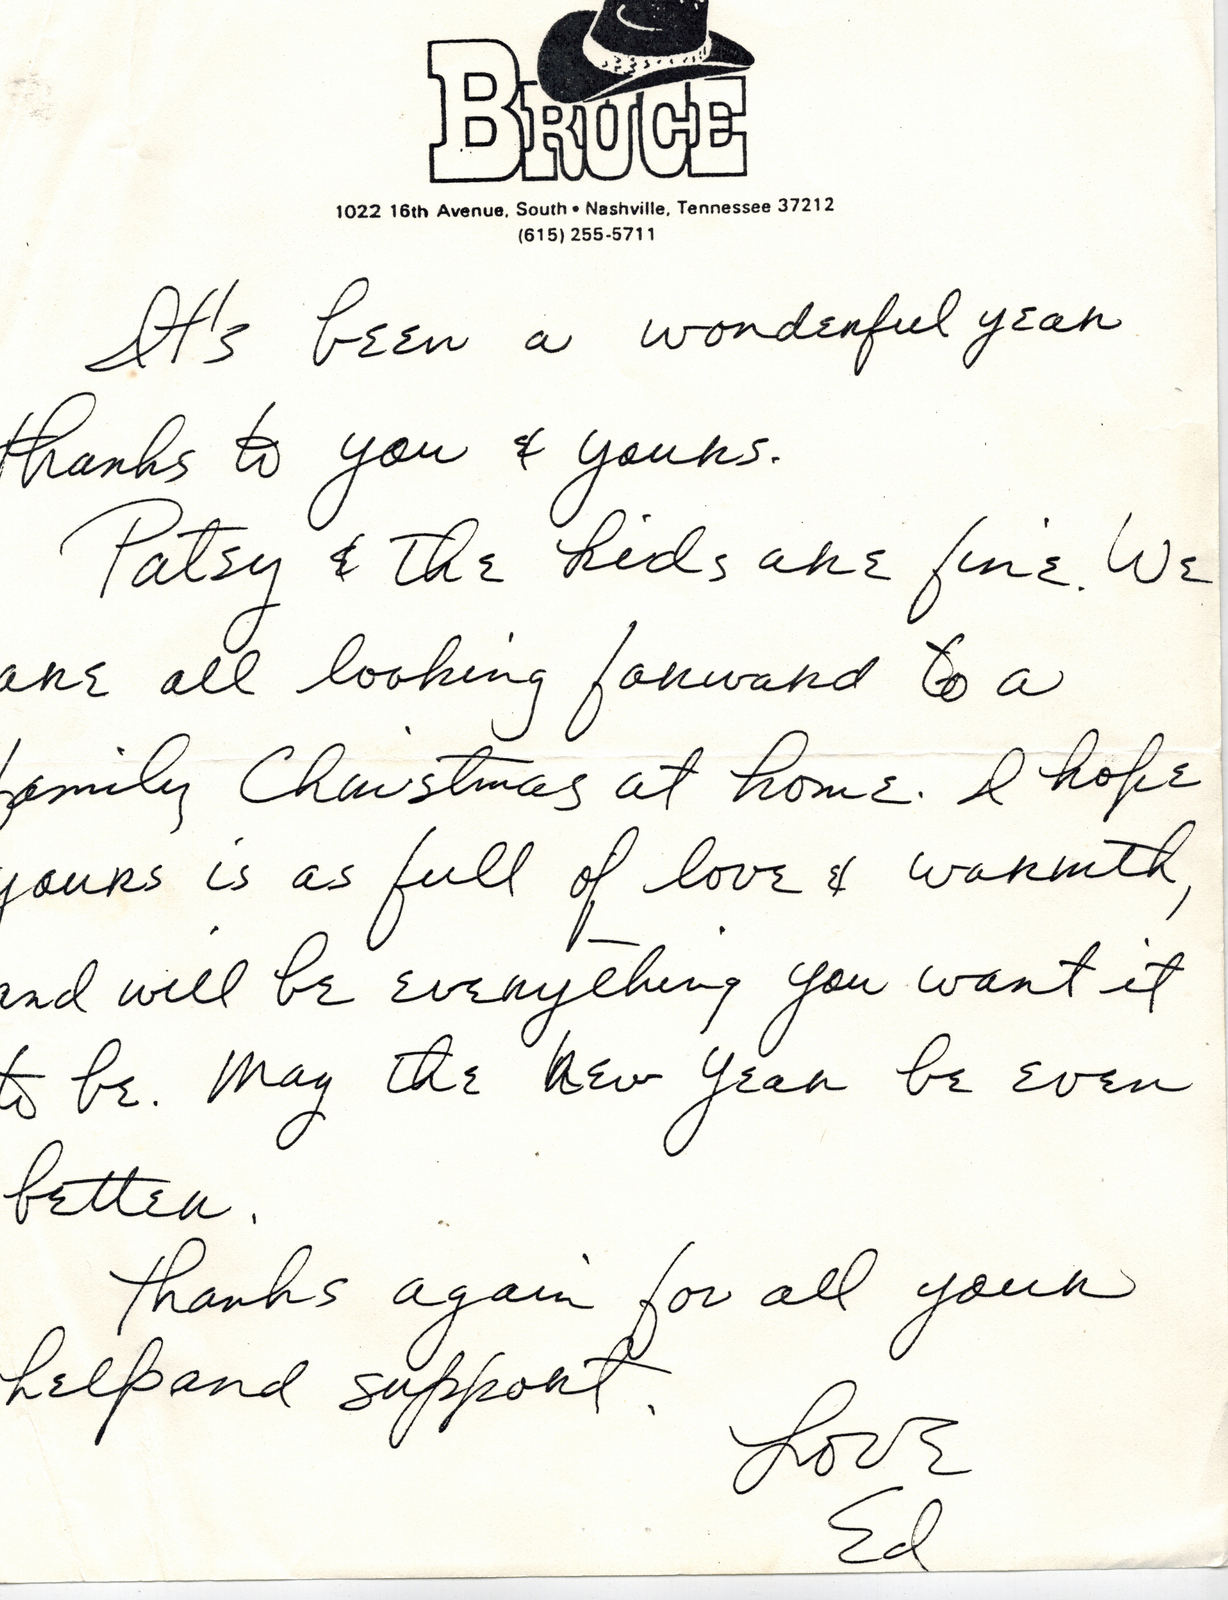 BRUCE
1022 16th Avenue, South • Nashville, Tennessee 37212
(615) 255-5711
It's been a wonderful year
thanks to you & yours.
Patsy & the kids are fine. We
are all looking forward to a
family Christmas at home. I hope
yours is as full of love & warmth,
and will be everything you want it
to be. May the New Year be even
better.
Thanks again for all your
help and support.
Love
Ed